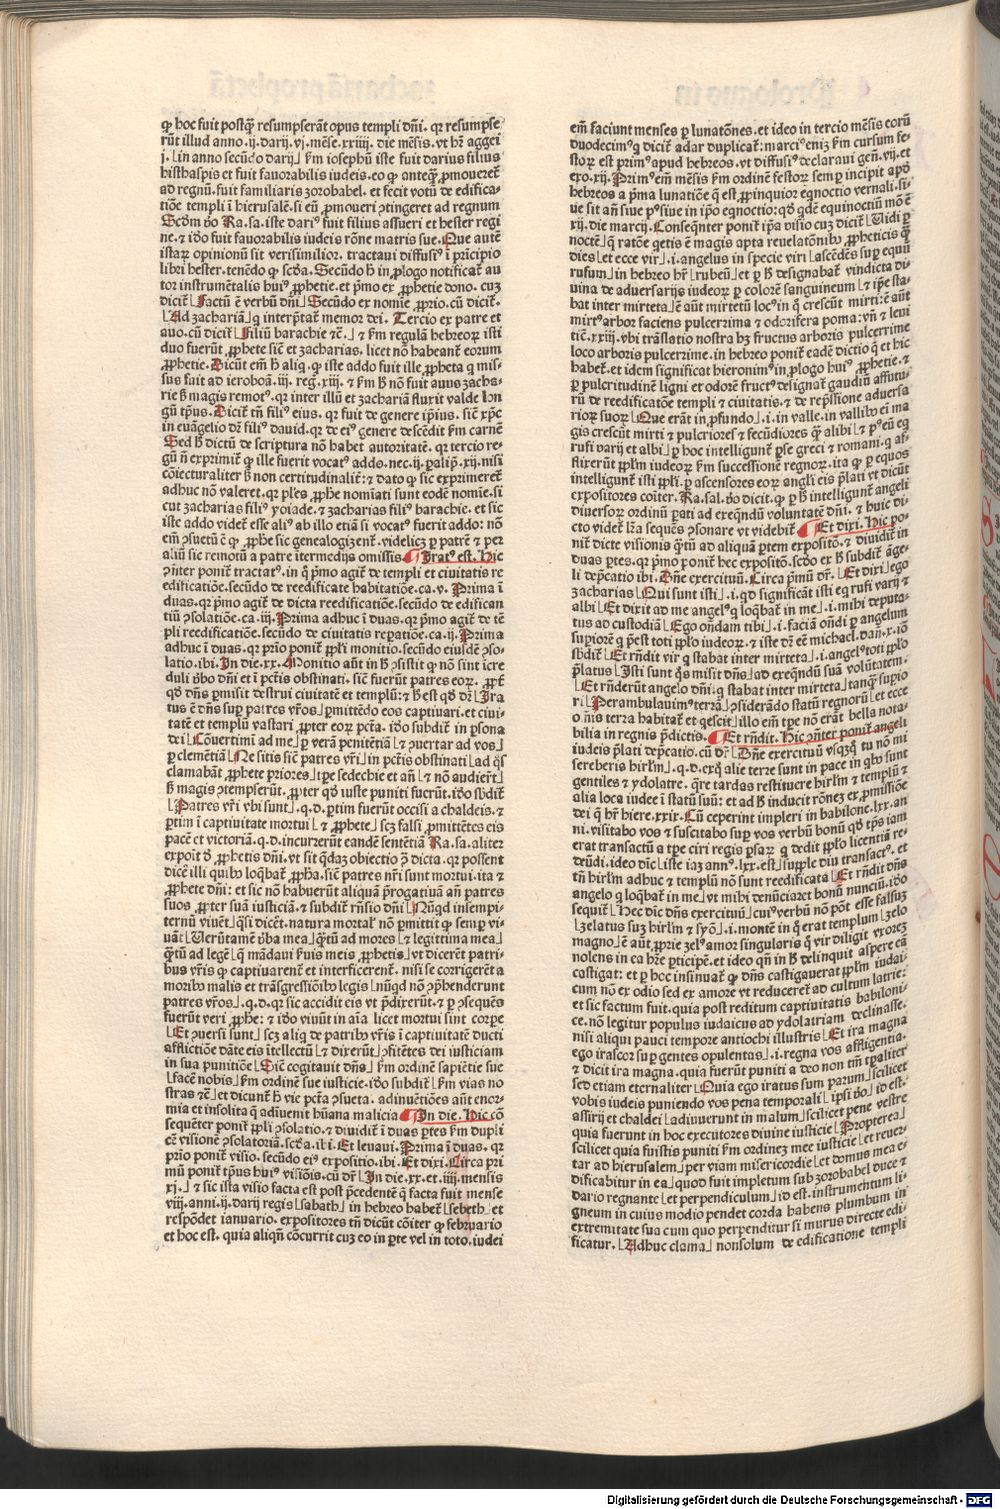 ꝙ hoc fuit postq̃ resumpserãt opus templi dñi. qꝛ resumpse
rũt illud anno .ij. darij. vj. mẽse. xxiiij. die mẽsis. vt hr̃ aggei
j. ⌊in anno secũdo darij⌋ ẜm iosephũ iste fuit darius filius
histhaspis et fuit fauorabilis iudeis. eo ꝙ anteqꝫ ꝓmoueret̃
ad regnũ. fuit familiaris zorobabel. et fecit votũ de edifica-
tiõe templi ĩ hierusalẽ. si eũ ꝓmoueri ↄtingeret ad regnum
Scd̃m ꝟo Ra. sa. iste dariꝰ fuit filius assueri et hester regi
ne. ⁊ iõo fuit fauorabilis iudeis rõne matris sue. Que autẽ
istaꝝ opinionũ sit verisimilior. tractaui diffusiꝰ ĩ prĩcipio
libri hester. tenẽdo ꝙ scd̃a. Secũdo h̃ in ꝓlogo notificat̃ au
tor instrumẽtalis huiꝰ ꝓphetie. et pͥmo ex ꝓphetie dono. cuꝫ
dicit̃ ⌊Factũ ẽ verbũ dñi⌋ Secũdo ex nomĩe ꝓprio. cũ dicit̃.
⌊Ad zachariã⌋ q̃ interp̃tat̃ memor dei. Tercio ex patre et
auo. cũ dicit̃ ⌊Filiũ barachie ⁊c̃.⌋ ⁊ ẜm regulã hebreoꝝ isti
duo fuerũt ꝓphete sic̃ et zacharias. licet nõ habeant̃ eorum
ꝓphetie. Dicũt em̃ h̃ aliq̃. ꝙ iste addo fuit ille ꝓpheta q̃ mis-
sus fuit ad ieroboã. iij. reg. xiij. ⁊ ẜm h̃ nõ fuit auus zacha-
rie h̃ magis remotꝰ. qꝛ inter illũ et zachariã fluxit valde lon
gũ tp̃us. Dicit̃ tñ filiꝰ eius. qꝛ fuit de genere ip̃ius. sic̃ xp̃c
in euãgelio dr̃ filiꝰ dauid. qꝛ de eiꝰ genere descẽdit ẜm carnẽ
Sed h̃ dictũ de scriptura nõ habet autoritatẽ. qꝛ tercio re-
gũ ñ exprimit̃ ꝙ ille fuerit vocatꝰ addo. nec .ij. ꝑalip̃. xij. nisi
cõiecturaliter h̃ non certitudinalit̃: ⁊ dato ꝙ sic exprimeret̃
adhuc nõ valeret. qꝛ ples ꝓphe nomĩati sunt eodẽ nomĩe. si
cut zacharias filiꝰ yoiade. ⁊ zacharias filiꝰ barachie. et sic
iste addo videt̃ esse aliꝰ ab illo etiã si vocatꝰ fuerit addo: nõ
em̃ ↄsuetũ ẽ ꝙ ꝓphe sic genealogizent̃. videlicꝫ ꝑ patrẽ ⁊ per
aliũ sic remotũ a patre ĩtermedijs omissis. ¶ Iratꝰ est. Hic
ↄñter ponit̃ tractatꝰ. in q̃ pͥmo agit̃ de templi et ciuitatis re
edificatiõe. secũdo de reedificate habitatiõe. ca. v. Prima ĩ
duas. qꝛ pͥmo agit̃ de dicta reedificatiõe. secũdo de edifican
tiũ ↄsolatiõe. ca. iij. Prima adhuc ĩ duas. qꝛ pͥmo agit̃ de tẽ
pli reedificatiõe. secũdo de ciuitatis reparatiõe. ca. ij. Prima
adhuc ĩ duas. qꝛ prio ponit̃ ppl̃i monitio. secũdo eiusdẽ ↄso-
latio. ibi. In die. xx. Monitio aũt in h̃ ↄsistit ꝙ nõ sint ĩcre
duli ꝟbo dñi et ĩ pctĩs obstinati. sic̃ fuerũt patres eoꝝ. ꝓpt̃
qd̃ dñs ꝑmisit destrui ciuitatẽ et templũ: ⁊ h̃ est qd̃ dr̃ ⌊Ira
tus ẽ dñs sup patres vr̃os⌋ ꝑmittẽdo eos captiuari. et ciui-
tatẽ et templũ vastari ꝓpter eoꝝ pctã. iõo subdit̃ in ꝑsona
dei ⌊Cõuertimĩ ad me⌋ ꝑ verã penitẽtiã ⌊⁊ ↄuertar ad vos⌋
ꝑ clemẽtiã ⌊Ne sitis sic̃ patres vr̃i⌋ in pctĩs obstinati ⌊ad q̃s
clamabãt ꝓphete priores⌋ tp̃e sedechie et añ ⌊⁊ nõ audierũt⌋
h̃ magis ↄtempserũt. ꝓpter qd̃ iuste puniti fuerũt. iõo sb̃dit̃
⌊Patres vr̃i vbi sunt⌋ .q. d. ptim fuerũt occisi a chaldeis. ⁊
ptim ĩ captiuitate mortui ⌊⁊ ꝓphete⌋ scꝫ falsi ꝓmittẽtes eis
pacẽ et victoriã. q. d. incurrerũt eandẽ sentẽtiã Ra. sa. aliter
expoit ð ꝓphetis dñi. vt sit q̃daꝫ obiectio ↄ̃ dicta. qꝛ possent
dicẽ illi quibꝰ loq̃bat̃ ꝓpha. sic̃ patres nr̃i sunt mortui. ita ⁊
ꝓphete dñi: et sic nõ habuerũt aliquã p̃rogatiuã añ patres
suos ꝓpter suã iusticiã. ⁊ subdit̃ rñsio dñi ⌊Nũqd insempi-
ternũ viuẽt⌋ q̃si dicẽt. natura mortal̃ nõ ꝑmittit ꝙ semp vi-
uãt ⌊Verũtamẽ ꝟba mea⌋ q̃tũ ad mores ⌊⁊ legittima mea⌋
q̃tũ ad legẽ ⌊q̃ mãdaui ẜuis meis ꝓphetis⌋ vt dicerẽt patri-
bus vr̃is ꝙ captiuarent̃ et interficerent̃. nisi se corrigerẽt a
moribꝰ malis et trãsgressiõibꝰ legis ⌊nũqd̃ nõ ↄp̃henderunt
patres vr̃os⌋ .q. d. qꝛ sic accidit eis vt p̃dixerũt. ⁊ ꝑ ↄsequẽs
fuerũt veri ꝓphe: ⁊ iõo viuũt in aĩa licet mortui sint corpe
⌊Et ↄuersi sunt⌋ scꝫ aliq̃ de patribꝰ vr̃is ĩ captiuitatẽ ducti
afflictiõe dãte eis ĩtellectũ ⌊⁊ dixerũt⌋ ↄfitẽtes dei iusticiam
in sua punitiõe ⌊Sic̃ cogitauit dñs⌋ ẜm ordinẽ sapiẽtie sue
⌊facẽ nobis⌋ ẜm ordinẽ sue iusticie. iõo subdit̃ ⌊ẜm vias no
stras ⁊c̃⌋ et dicunt̃ h̃ vie pctã ↄsueta. adinuẽtiões aũt enor-
mia et insolita q̃ adĩuenit hũana malicia ¶ In die. Hic cõ
sequẽter ponit̃ ppl̃i ↄsolatio. ⁊ diuidit̃ ĩ duas ptes ẜm dupli
cẽ visionẽ ↄsolatoriã. scd̃a. ibi. Et leuaui. Prima ĩ duas. qꝛ
prio ponit̃ visio. secũdo eiꝰ expositio. ibi. Et dixi. Circa pri
mũ ponit̃ tp̃us huiꝰ visiõis. cũ dr̃ ⌊In die. xx. et. iiij. mensis
xj.⌋ ⁊ sic ista visio facta est post p̃cedentẽ q̃ facta fuit mense
viij. anni. ij. darij regis ⌊sabath⌋ in hebreo habet̃ ⌊sebeth⌋ et
respõdet ianuario. expositores tñ dicũt cõiter ꝙ februario
et hoc est. quia aliqñ cõcurrit cuꝫ eo in pte vel in toto. iudei
em̃ faciunt menses ꝑ lunatõnes. et ideo in tercio mẽsis eorũ
duodecimꝰ q̃ dicit̃ adar duplicat̃: marciꝰ eniꝫ ẜm cursum fe-
stoꝝ est primꝰ apud hebreos. vt diffusiꝰ declaraui geñ. vij. et
exo. xij. Primꝰ em̃ mẽsis ẜm ordinẽ festoꝝ semp incipit apð
hebreos a pͥma lunatiõe q̃ est ꝓpinquior eq̃noctio vernali. si-
ue sit añ siue pꝰ siue in ip̃o eq̃noctio: qð qdẽ equinoctiũ mõ ẽ
xij. die marcij. Conseq̃nter ponit̃ ip̃a visio cuꝫ dicit̃ ⌊Vidi ꝑ
noctẽ⌋ q̃ ratõne q̃etis ẽ magis apta reuelatõnibꝰ ꝓpheticis q̃ꝫ
dies ⌊et ecce vir⌋ .i. angelus in specie viri ⌊ascẽdẽs sup equũ
rufum⌋ in hebreo hr̃ ⌊rubeũ⌋ et ꝑ h̃ designabat̃ vindicta di-
uina de aduersarijs iudeoꝝ ꝑ colorẽ sanguineum ⌊⁊ ip̃e sta-
bat inter mirteta⌋ ẽ aũt mirtetũ locꝰ in q̃ crescũt mirti: ẽ aũt
mirtꝰ arbor faciens pulcerrima ⁊ odorifera poma: vñ ⁊ leui
tic̃. xxiij. vbi trãslatio nostra hꝫ fructus arboris pulcerrime
loco arboris pulcerrime. in hebreo ponit̃ eadẽ dictio q̃ et hic
habet̃. et idem significat hieronimꝰ in ꝓlogo huiꝰ ꝓphetie. ⁊
ꝑ pulcritudinẽ ligni et odorẽ fructꝰ designat̃ gaudiũ affutu-
rũ de reedificatõe templi ⁊ ciuitatis. ⁊ de rep̃ssione aduersa
rioꝝ suoꝝ ⌊Que erãt in ꝓfundo⌋ .i. in valle. in vallibꝰ eñ ma
gis crescũt mirti ⁊ pulcriores ⁊ fecũdiores q̃ꝫ alibi ⌊⁊ pꝰ eũ eq̃
rufi varij et albi⌋ ꝑ hoc intelligunt̃ ꝑse greci ⁊ romani. q̃ af-
flixerũt ppl̃m iudeoꝝ ẜm successionẽ regnoꝝ. ita ꝙ ꝑ equos
intelligunt̃ isti ppl̃i. ꝑ ascensores eoꝝ angl̃i eis p̃lati vt dicũt
expositores cõiter. Ra. sal. ꝟo dicit. ꝙ ꝑ h̃ intelligunt̃ angeli
diuersoꝝ ordinũ pati ad exeq̃ndũ voluntatẽ dñi. ⁊ huic di-
cto videt̃ lr̃a sequẽs ↄsonare vt videbit̃ ¶ Et dixi. Hic po-
nit̃ dicte visionis q̃tũ ad aliquã ptem expositõ. ⁊ diuidit̃ in
duas ptes. qꝛ pͥmo ponit̃ hec expositõ. scd̃o ex h̃ subdit̃ ãge-
li dep̃catio ibi. Dñe exercituũ. Circa pͥmũ dr̃. ⌊Et dixi⌋ ego
zacharias ⌊Qui sunt isti⌋ .i. qd significãt isti eq̃ rufi varij ⁊
albi ⌊Et dixit ad me angelꝰ q̃ loq̃bat̃ in me⌋ .i. mihi deputa-
tus ad custodiã ⌊Ego oñdam tibi⌋ .i. faciã oñdi ꝑ angelum
supiorẽ q̃ p̃est toti ppl̃o iudeoꝝ. ⁊ iste dr̃ eẽ michael. dañ. x. iõ
sb̃dit̃ ⌊Et rñdit vir q̃ stabat inter mirteta⌋ .i. angelꝰ toti ppl̃o
p̃latus ⌊Isti sunt q̃s misit dñs⌋ ad exeq̃ndũ suã voluntatem.
⌊Et rñderũt angelo dñi. q̃ stabat inter mirteta⌋ tanq̃ꝫ supio
ri ⌊Perambulauimꝰ terrã⌋ ↄsiderãdo statũ regnorũ ⌊et ecce
oĩs terra habitat̃ et q̃escit⌋ illo em̃ tp̃e nõ erãt bella nota-
bilia in regnis p̃dictis. ¶ Et rñdit. Hic ↄñter ponit̃ angeli
iudeis p̃lati dep̃catio. cũ dr̃ ⌊Dñe exercituũ vsq̃qꝫ tu nõ mi
sereberis hirl̃m⌋ .q. d. exq̃ alie terre sunt in pace in qbꝰ sunt
gentiles ⁊ ydolatre. q̃re tardas restituere hirl̃m ⁊ templũ ⁊
alia loca iudee ĩ statũ suũ: et ad h̃ inducit rõneꝫ ex ꝓmissiõe
dei q̃ hr̃ hiere. xxix. Cũ ceperint impleri in babilone. lxx. an
ni. visitabo vos ⁊ suscitabo sup vos verbũ bonũ qð tp̃s iam
erat transactũ a tp̃e ciri regis psaꝝ q̃ dedit ppl̃o licentiã re-
deũdi. ideo dic̃ ⌊iste iaꝫ annꝰ. lxx. est⌋ supple diu transactꝰ. et
tñ hirl̃m adhuc ⁊ templũ nõ sunt reedificata ⌊Et rñdit dñs
angelo q̃ loq̃bat̃ in me⌋ vt mihi denũciaret bonũ nunciũ. iõo
sequit̃ ⌊Hec dic̃ dñs exercituũ⌋ cuiꝰ verbũ nõ põt esse falsuꝫ
⌊zelatus suꝫ hirl̃m ⁊ syõ⌋ .i. montẽ in q̃ erat templum ⌊zelo
magno⌋ ẽ aũt ꝓprie zelꝰ amor singularis q̃ vir diligit vxorẽ
nolens in ea hr̃e pticipẽ. et ideo qñ in h̃ delinquit aspere eã
castigat: et ꝑ hoc insinuat̃ ꝙ dñs castigauerat ppl̃m iudai-
cum nõ ex odio sed ex amore vt reduceret ad cultum latrie:
et sic factum fuit. quia post reditum captiuitatis babiloni-
ce. nõ legitur populus iudaicus ad ydolatriam declinasse.
nisi aliqui pauci tempore antiochi illustris ⌊Et ira magna
ego irascor sup gentes opulentas⌋ .i. regna vos affligentia.
⁊ dicit ira magna. quia fuerũt puniti a deo non tm̃ tp̃aliter
sed etiam eternaliter ⌊Quia ego iratus sum parum⌋ scilicet
vobis iudeis puniendo vos pena temporali ⌊ip̃si ꝟo⌋ id est.
assirij et chaldei ⌊adiuuerunt in malum⌋ scilicet pene vestre
quia fuerunt in hoc executores diuine iusticie ⌊Propterea⌋
scilicet quia fuistis puniti ẜm ordineꝫ mee iusticie ⌊et reuer-
tar ad hierusalem⌋ per viam misericordie ⌊et domus mea e-
dificabitur in ea⌋ quod fuit impletum sub zorobabel duce ⁊
dario regnante ⌊et perpendiculum⌋ id est. instrumentum li-
gneum in cuius modio pendet corda habens plumbum in
extremitate sua cum quo perpenditur si murus directe edi-
ficatur. ⌊Adhuc clama⌋ nonsolum de edificatione templi
Digitalisierung gefördert durch die Deutsche Forschungsgemeinschaft - DFG